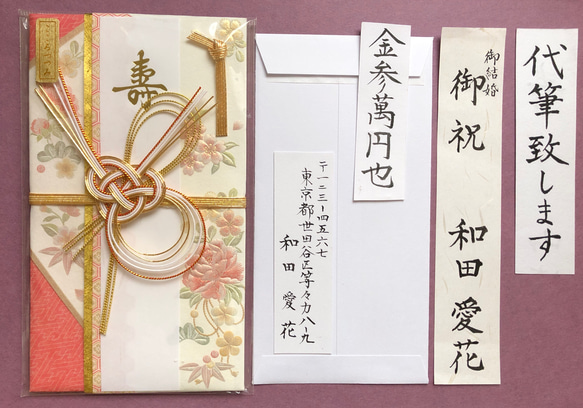 代筆致します
御結婚
御祝 和田愛花
金参萬円也
〒一二三-四五六七
東京都世田谷区等々力八-九
和田愛花
寿